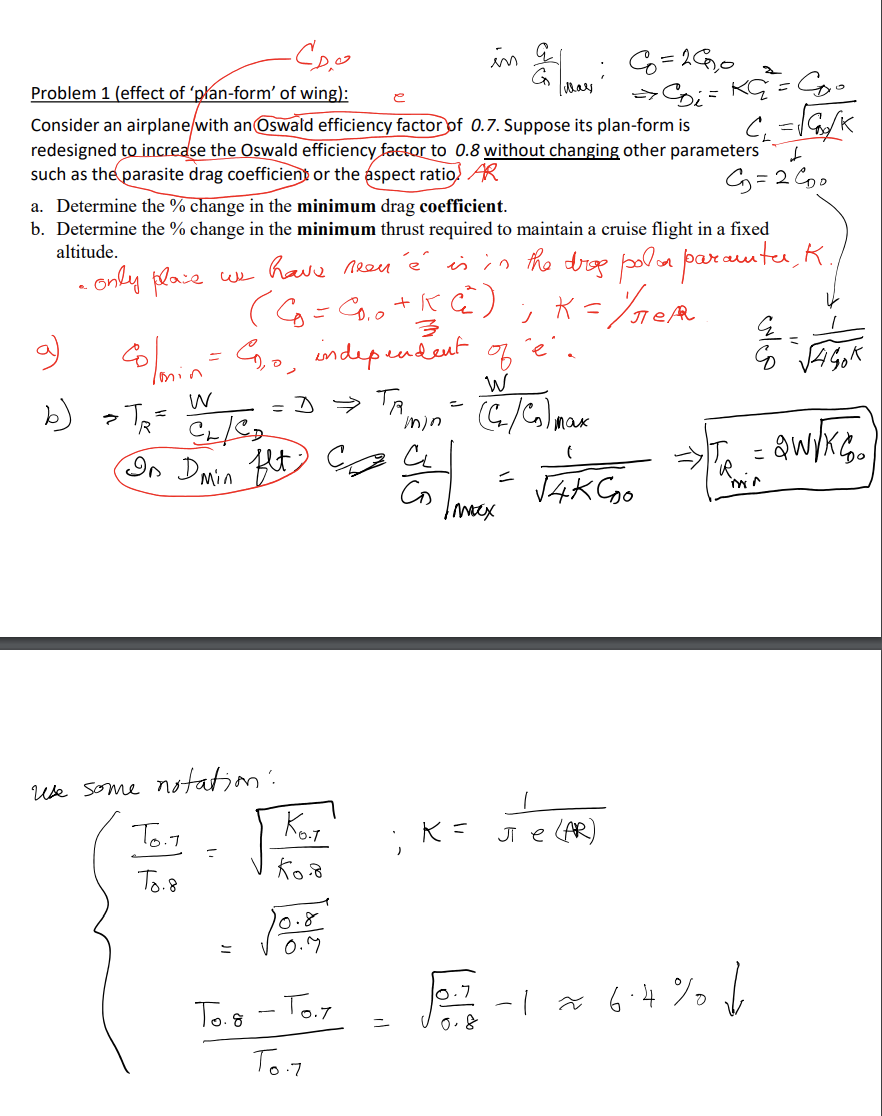 C_D,o
in C_L/C_D|max: C_D = 2C_D,o
⇒ C_Di = KC_L² = C_Do
C_L = √(C_Do/K)
↓
C_D = 2 C_Do
Problem 1 (effect of 'plan-form' of wing):
e
Consider an airplane with an Oswald efficiency factor of 0.7. Suppose its plan-form is
redesigned to increase the Oswald efficiency factor to 0.8 without changing other parameters
such as the parasite drag coefficient or the aspect ratio. AR
a. Determine the % change in the minimum drag coefficient.
b. Determine the % change in the minimum thrust required to maintain a cruise flight in a fixed
altitude.
• only place we have seen 'e' is in the drag polar parameter, K.
(C_D = C_D,o + K C_L²) ; K = 1/πeAR
C_L/C_D = 1/√(4C_DoK)
a) C_D|min = C_D,o, independent of 'e'.
b) → T_R = W/(C_L/C_D) = D ⇒ T_R min = W/(C_L/C_D)max
In D_Min flt: C_L/C_D|max = 1/√(4KC_Do) ⇒ T_R min = 2W√(KC_Do)
use some notation:
T_0.7/T_0.8 = √(K_0.7/K_0.8) ; K = 1/(π e (AR))
= √(0.8/0.7)
(T_0.8 − T_0.7)/T_0.7 = √(0.7/0.8) − 1 ≈ 6.4 % ↓